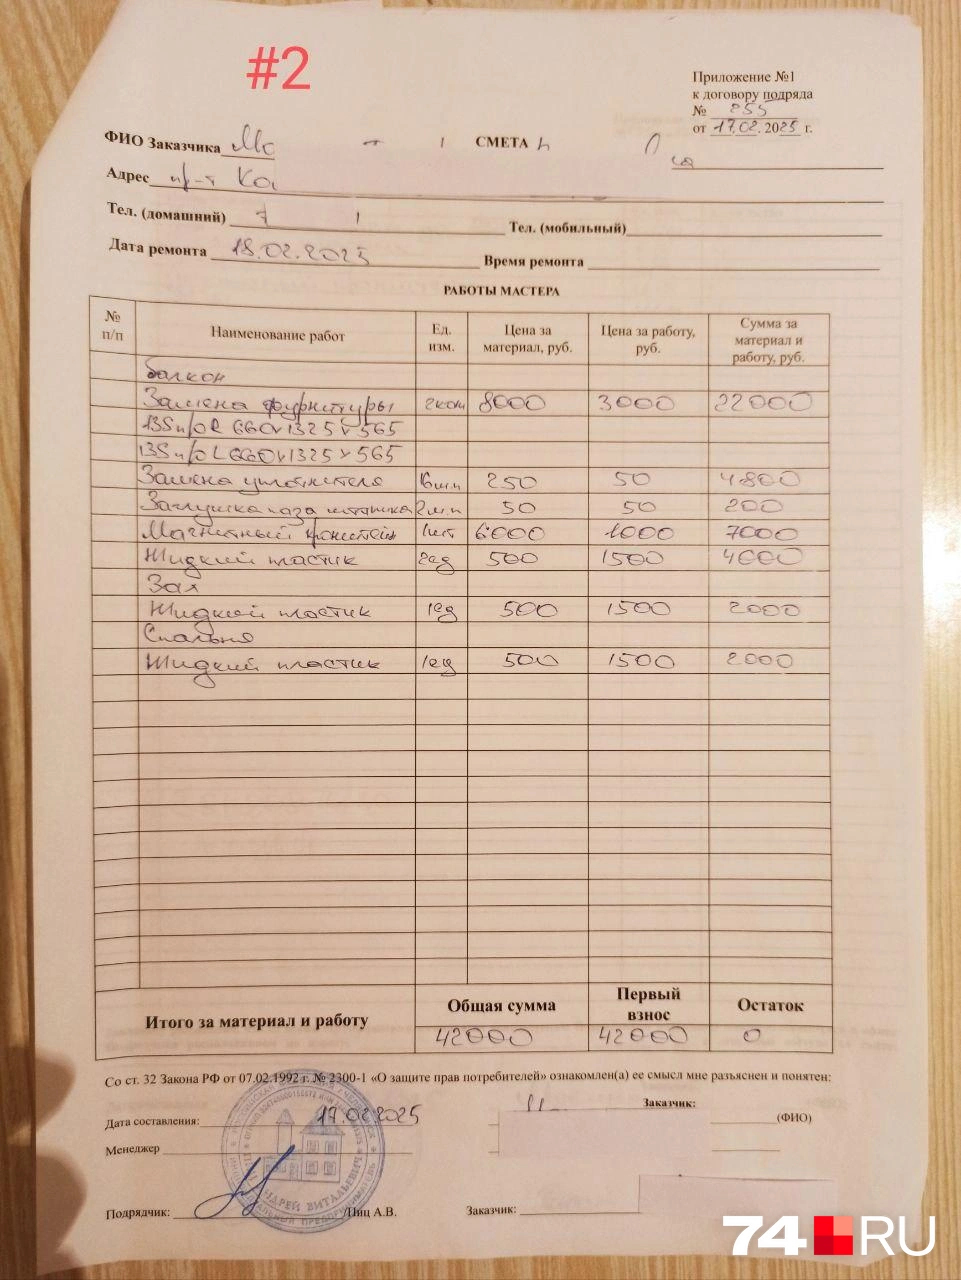 #2
Приложение №1
к договору подряда
№ 255
от 17.02. 2025 г.
ФИО Заказчика Мо СМЕТА
Адрес пр-т Ка
Тел. (домашний) 7 Тел. (мобильный)
Дата ремонта 18.02.2025 Время ремонта
РАБОТЫ МАСТЕРА
№ п/п Наименование работ Ед. изм. Цена за материал, руб. Цена за работу, руб. Сумма за материал и работу, руб.
балкон
Замена фурнитуры 2ком 8000 3000 22000
13S п/о R 660х1325х565
13S п/о L 660х1325х565
Замена уплотнителя 16м.п 250 50 4800
Заглушка паза штапика 2м.п 50 50 200
Магнитный кронштейн 1шт 6000 1000 7000
Жидкий пластик 2ед 500 1500 4000
Зал
Жидкий пластик 1ед 500 1500 2000
Спальня
Жидкий пластик 1ед 500 1500 2000
Итого за материал и работу Общая сумма Первый взнос Остаток
42000 42000 0
Со ст. 32 Закона РФ от 07.02.1992 г. № 2300-1 «О защите прав потребителей» ознакомлен(а) ее смысл мне разъяснен и понятен:
Дата составления: 17.02.2025 Заказчик: (ФИО)
Менеджер
Подрядчик: /Пиц А.В. Заказчик:
74 RU